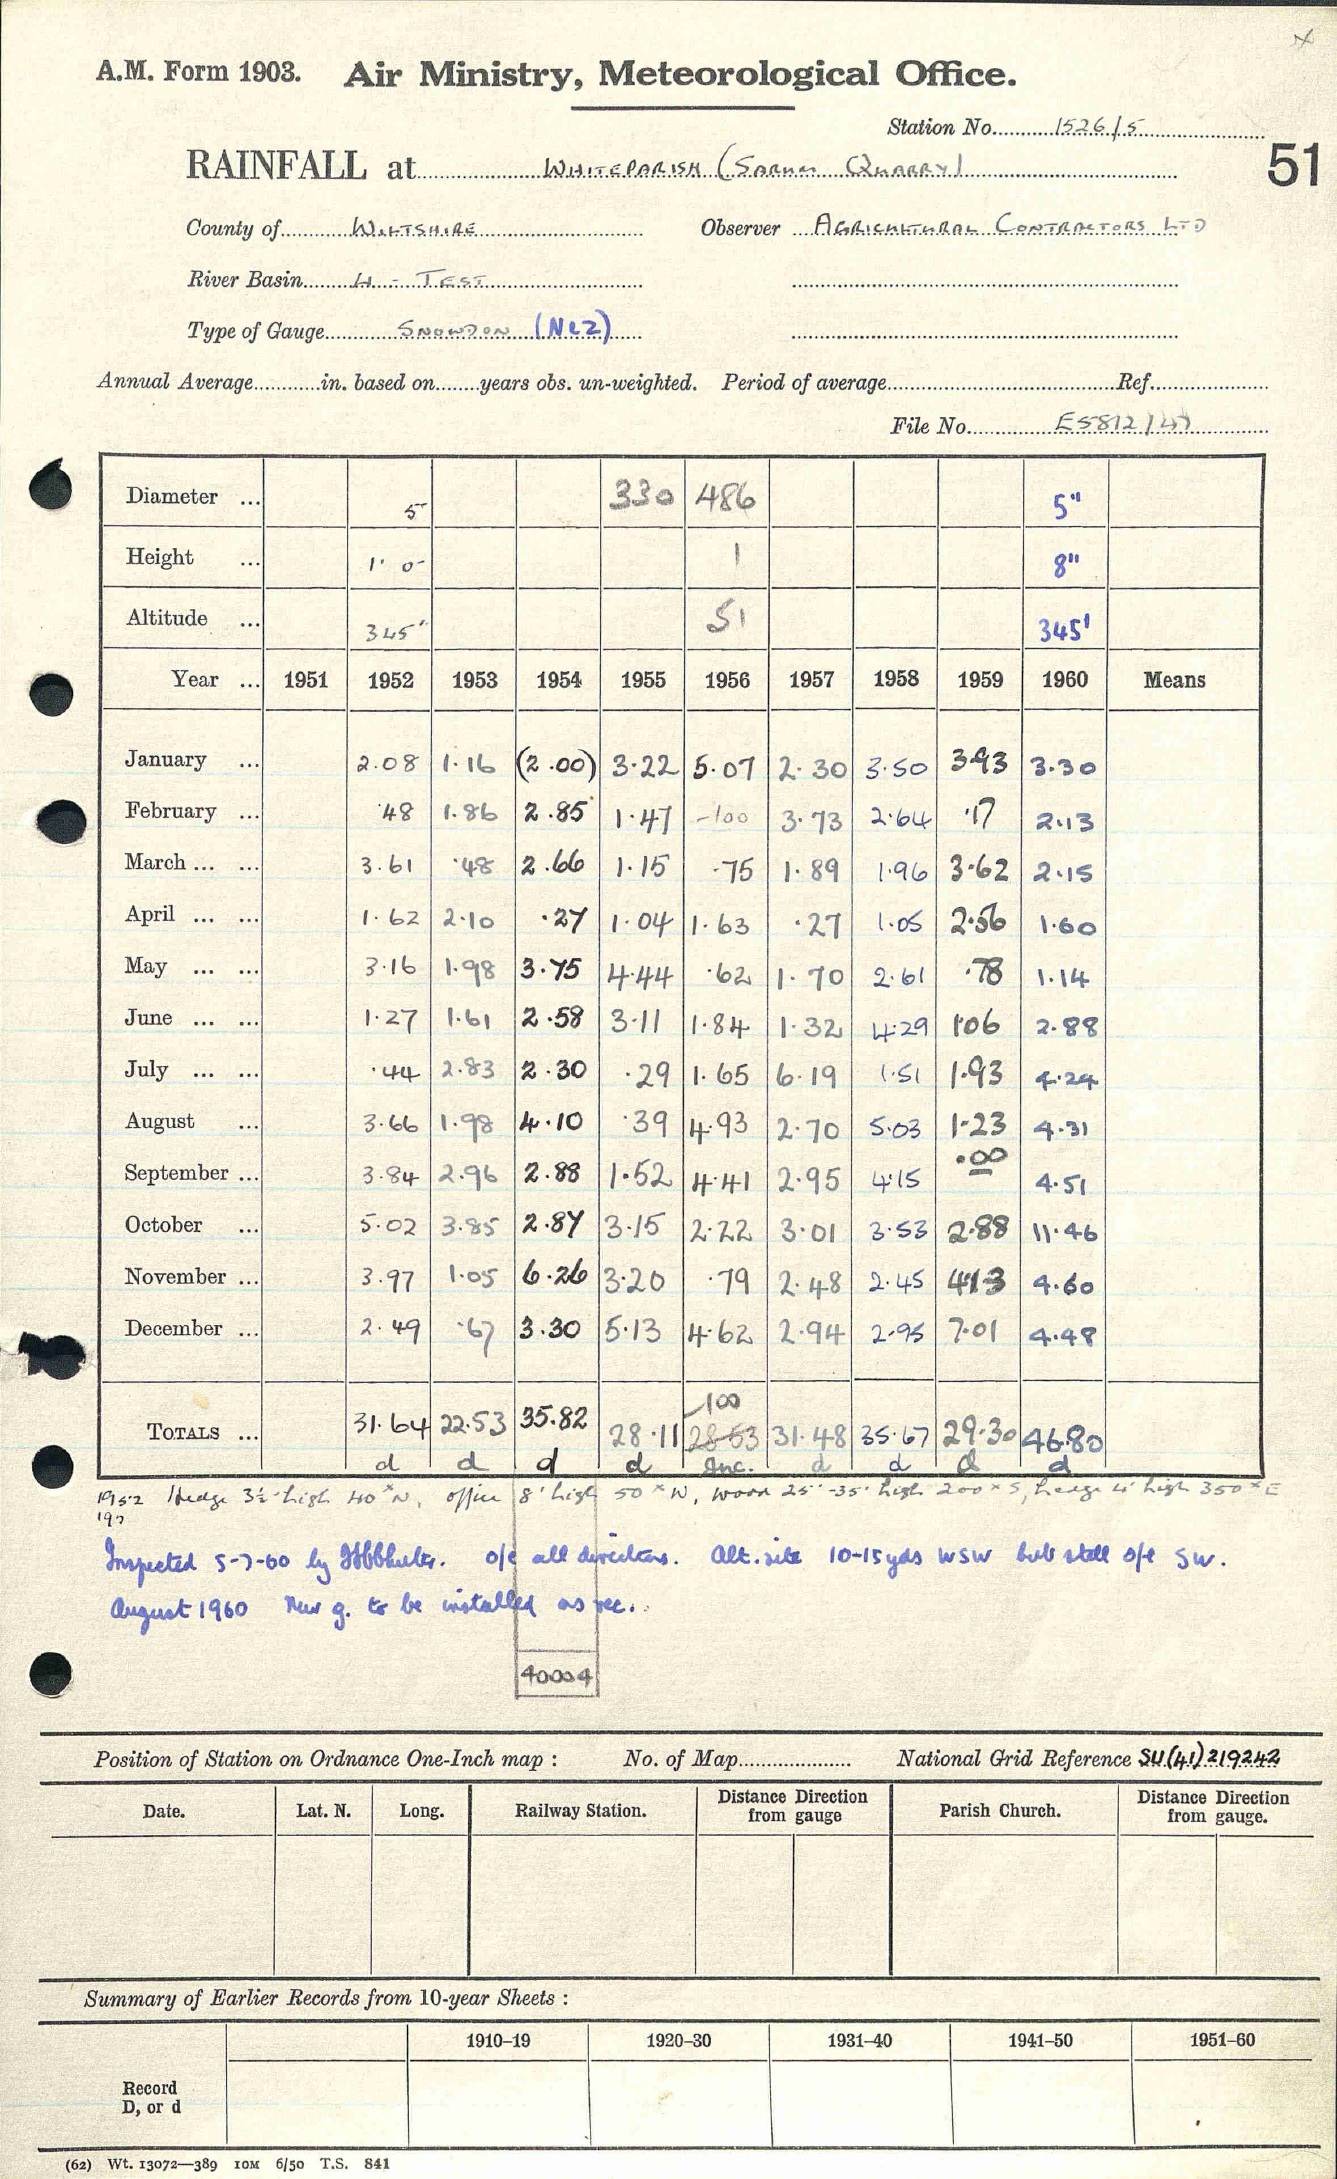 A.M. Form 1903. Air Ministry, Meteorological Office.
Station No. 1526/5
RAINFALL at WHITEPARISH (SARUM QUARRY) 51
County of WILTSHIRE Observer AGRICULTURAL CONTRACTORS LTD
River Basin 4 - TEST
Type of Gauge SNOWDON (Nc2)
Annual Average in. based on years obs. un-weighted. Period of average Ref.
File No. E5812/47
Diameter ... 5 330 486 5"
Height ... 1' 0" 1 8"
Altitude ... 345' 51 345'
Year ... 1951 1952 1953 1954 1955 1956 1957 1958 1959 1960 Means
January ... 2.08 1.16 (2.00) 3.22 5.07 2.30 3.50 3.93 3.30
February ... .48 1.86 2.85 1.47 -100 3.73 2.64 .17 2.13
March ... ... 3.61 .48 2.66 1.15 .75 1.89 1.96 3.62 2.15
April ... ... 1.62 2.10 .27 1.04 1.63 .27 1.05 2.56 1.60
May ... ... 3.16 1.98 3.75 4.44 .62 1.70 2.61 .78 1.14
June ... ... 1.27 1.61 2.58 3.11 1.84 1.32 4.29 1.06 2.88
July ... ... .44 2.83 2.30 .29 1.65 6.19 1.51 1.93 4.24
August ... 3.66 1.98 4.10 .39 4.93 2.70 5.03 1.23 4.31
September ... 3.84 2.96 2.88 1.52 4.41 2.95 4.15 .00 4.51
October ... 5.02 3.85 2.87 3.15 2.22 3.01 3.53 2.88 11.46
November ... 3.97 1.05 6.26 3.20 .79 2.48 2.45 4.13 4.60
December ... 2.49 .67 3.30 5.13 4.62 2.94 2.95 7.01 4.48
-100
TOTALS ... 31.64 22.53 35.82 28.11 28.53 31.48 35.67 29.30 46.80
d d d d Inc. d d d d
1952 Hedge 3½' high 40ˣN, office 8' high 50ˣW, wood 25'-35' high 200ˣS, hedge 4' high 350ˣE
197
Inspected 5-7-60 by o/e all directions. Alt. site 10-15yds WSW but still o/e SW.
August 1960 New g. to be installed as rec.
40004
Position of Station on Ordnance One-Inch map : No. of Map National Grid Reference SU(41)219242
Date. Lat. N. Long. Railway Station. Distance Direction from gauge Parish Church. Distance Direction from gauge.
Summary of Earlier Records from 10-year Sheets :
1910–19 1920–30 1931–40 1941–50 1951–60
Record
D, or d
(62) Wt. 13072—389 10M 6/50 T.S. 841